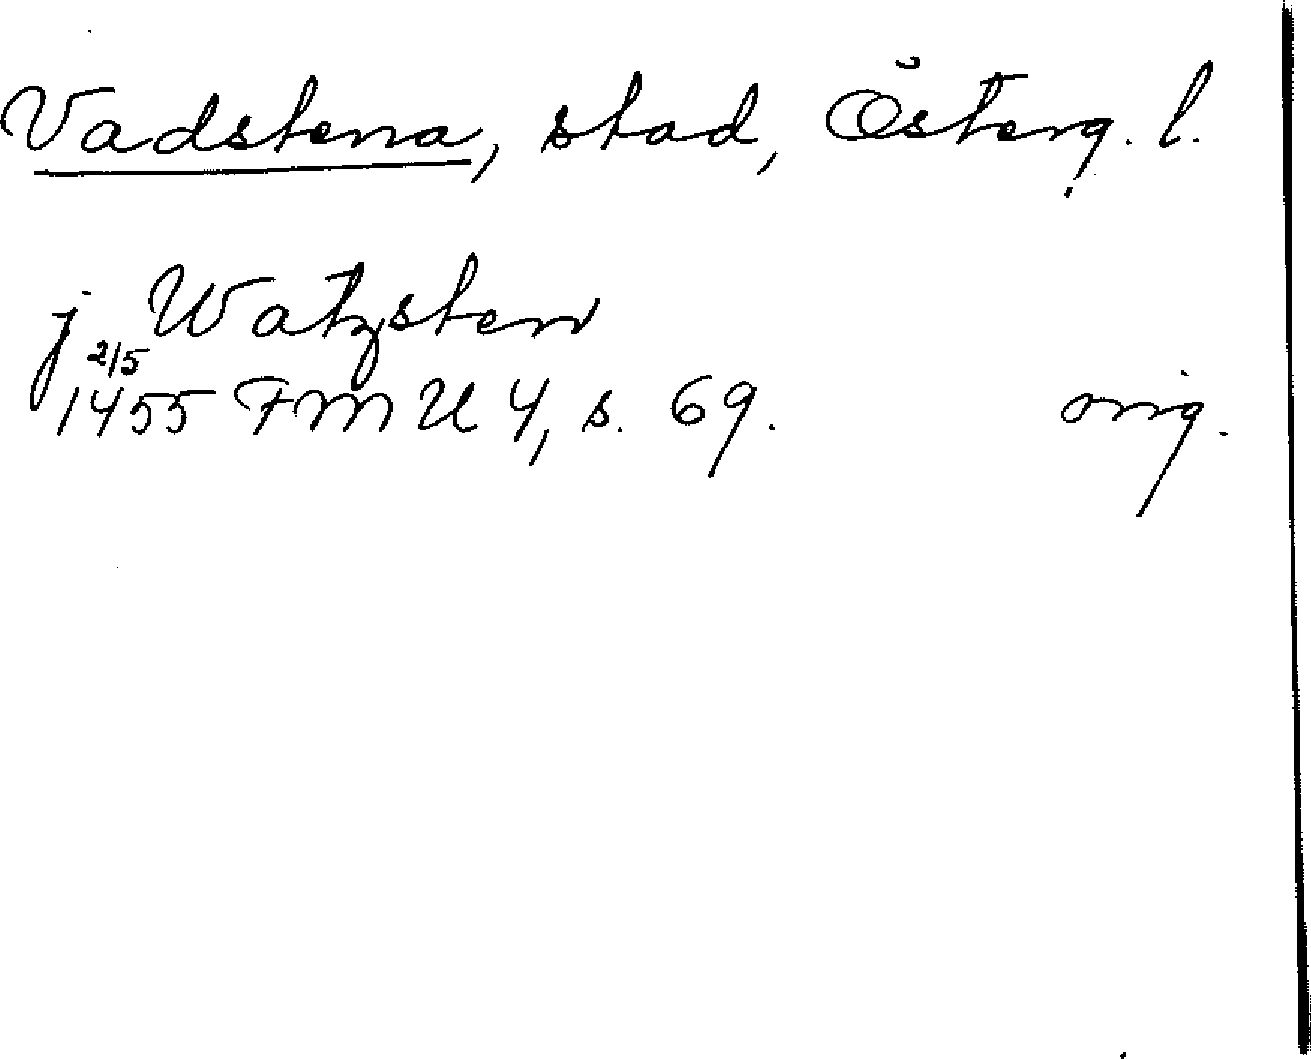 Vadstena, stad, Österg. l.
j Watzsten
2/5
1455 FMU 4, s. 69. orig.